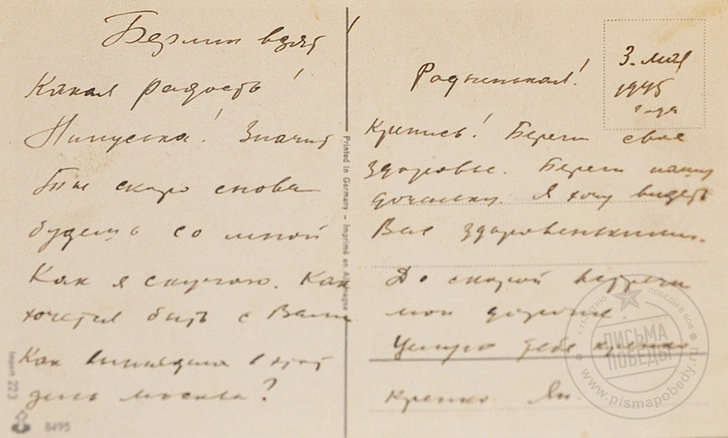 Берлин взят!
Какая радость!
Нинуська! Значит
ты скоро снова
будешь со мной
Как я скучаю. Как
хочется быть с Вами
Как выглядела в этот
день москва?
Printed in Germany — Imprimé en Allemagne
Import 223
8495
3. мая
1945
года
Родненькая!
Крепись! Береги свое
здоровье. Береги нашу
доченьку. Я хочу видеть
Вас здоровенькими.
До скорой встречи
мои дорогие.
Целую тебя крепко
крепко Ян.
ПИСЬМА
ПОБЕДЫ
www.pismapobedy.ru